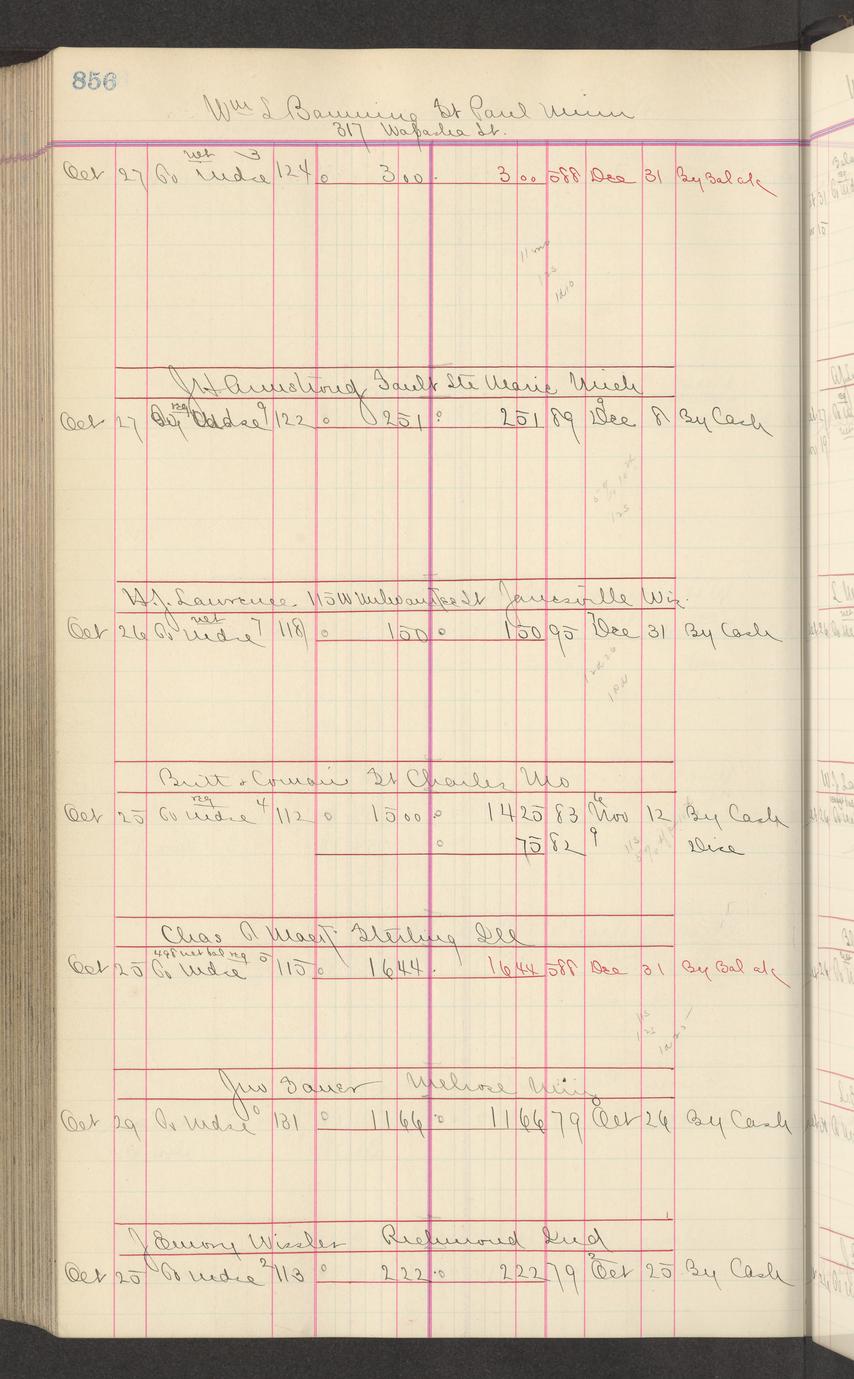 856
Wm L Banning St Paul Minn
317 Wabasha St.
net 3
Oct 27 To Mdse 124 3 00 3 00 588 Dec 31 By Bal a/c
J H Armstrong Sault Ste Marie Mich
reg 9 9
Oct 27 Mdse 122 2 51 2 51 89 Dec 8 By Cash
H.J. Lawrence 115 W Milwaukee St Janesville Wis.
net 7 7
Oct 26 To Mdse 118 1 50 1 50 95 Dec 31 By Cash
Britt & St Charles Mo
reg 4 6
Oct 25 To Mdse 112 15 00 14 25 83 Nov 12 By Cash
75 82 9 Disc
Chas Sterling Ill
net bal reg 5
Oct 25 To Mdse 115 16 44 16 44 588 Dec 31 By Bal a/c
Jno Bauer Melrose Minn
0 8
Oct 29 To Mdse 131 11 66 11 66 79 Oct 26 By Cash
J Emory Wissler Richmond Ind
2 3
Oct 25 To Mdse 113 2 22 2 22 79 Oct 25 By Cash